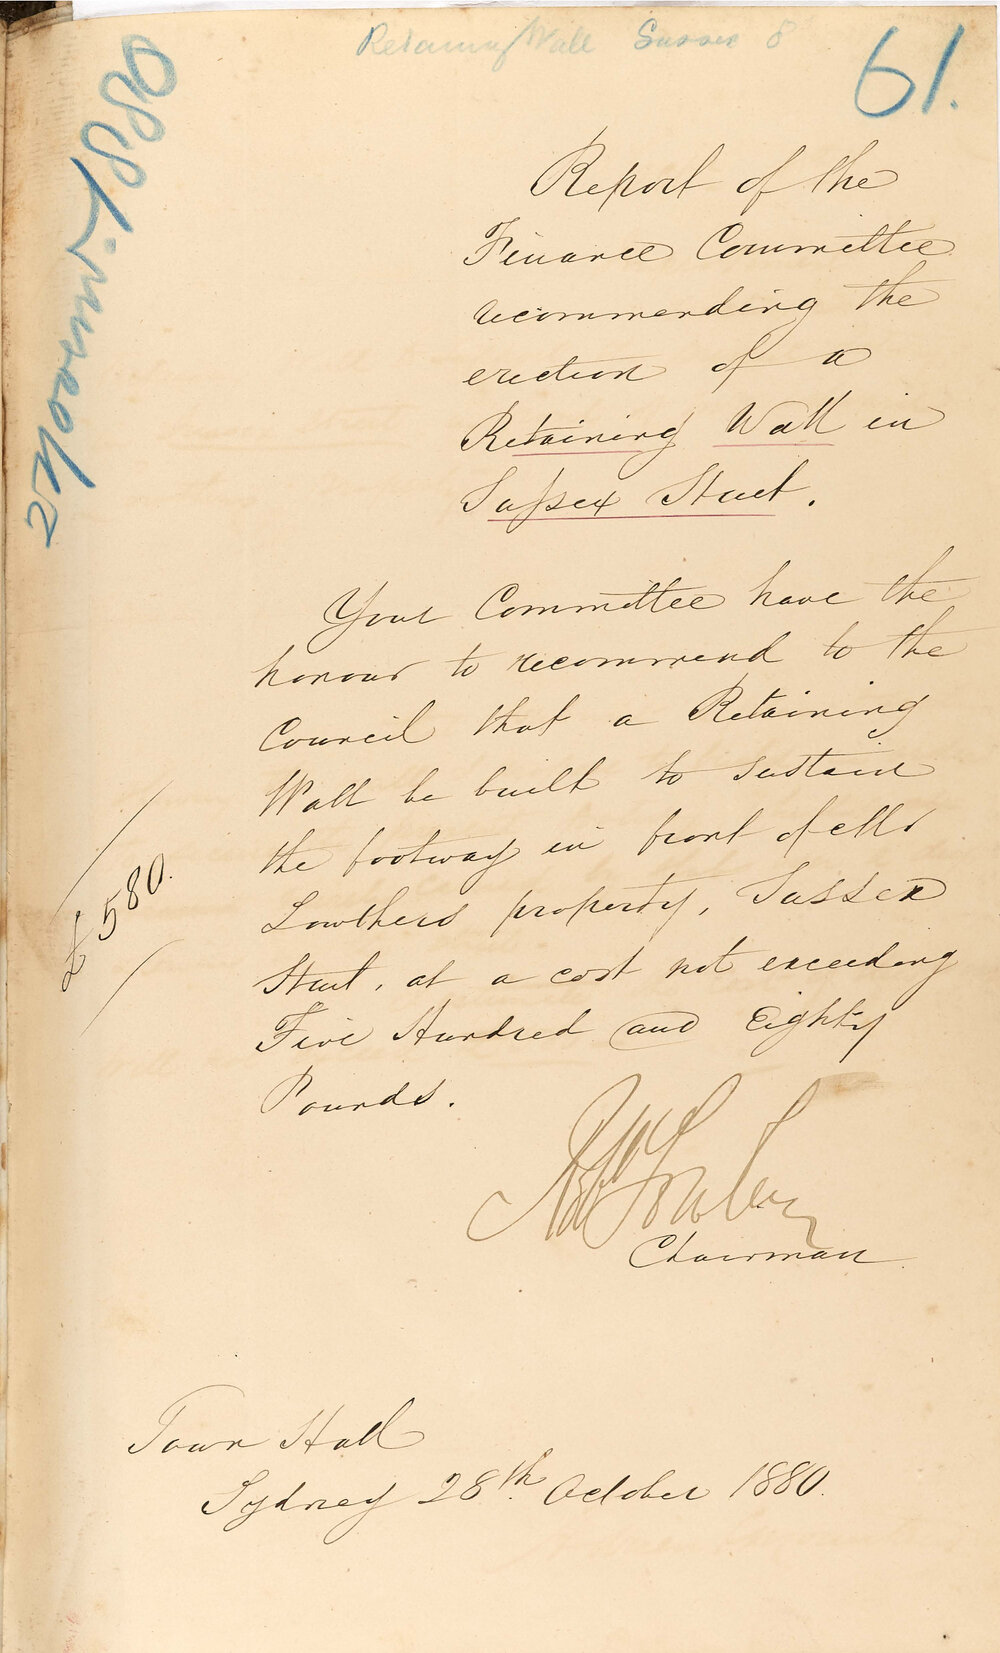 Retaining Wall Sussex S
61.
2 Novem. 1880
Report of the
Finance Committee
recommending the
erection of a
Retaining Wall in
Sussex Street.
Your Committee have the
honour to recommend to the
Council that a Retaining
Wall be built to sustain
the footway in front of Mr
Lowthers property, Sussex
Street, at a cost not exceeding
Five Hundred and Eighty
Pounds.
£580.
Fowler
Chairman
Town Hall
Sydney 28th. October 1880.